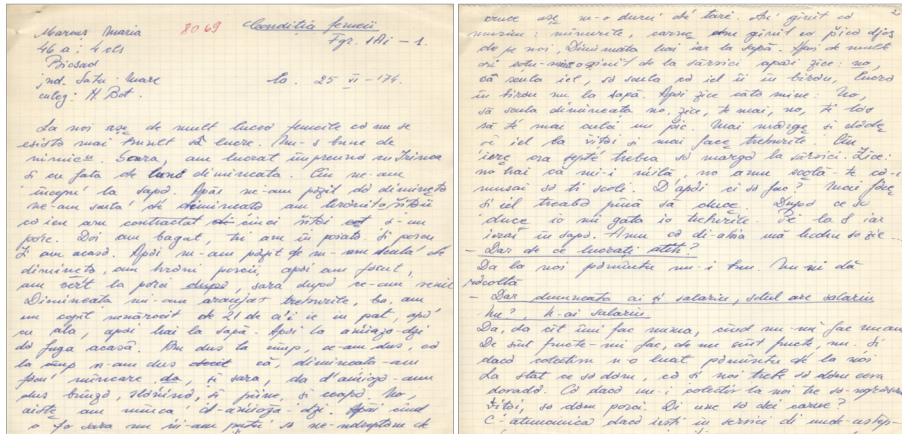 Condiția femeii
Marcus Maria 8069 Fgr. 1Ai - 1.
46 a; 4 cls
Bicsad
jud. Satu-Mare 25 VI - 174.
culeg: N. Bot
La noi așe de mult lucră femeile că nu se
esistă mai mult să lucre. Nu-s bune de
nimic. Sara, am lucrat împreună cu Irina
și cu fata de luni dimineața. Ne-am
la sapă. ne-am de dimineță
ne-am sculat de dimineață am
că ieu am contractat cinci viței și-un
porc. Doi am bagat, tri am în și porcu
îl am acasă. Apăi m-am de m-am sculat de
dimineță, am hrăni porcii, apoi am focul,
am la porci după, sara după ce-am venit
Dimineața mi-am aranjat treburile, ba, am
un copil nenărocit de 21 de ai îi ie în pat, apă
cu ala, apoi hai la sapă. Apăi la amiaza-dzi
dă fuga acasă. Am dus la cîmp, ce-am dus, că
la cîmp n-am dus că, dimineață-am
mîncare, și sara, da d'amiaza-am
dus brînză, slănină, și pîne, și ceapă. No,
aiste am mînca d-amiaza-dzi. Apăi cînd
o fo sara nu ni-am putut să ne-ndreptăm de
2
cruce așe m-o durut de tare. Am gîndit că
murim: mînurile, carne am gîndit că pică djos
de pe noi, Dimineața hai iar la sapă. Apăi de mult
ori gîndit de la sărvici apăi zice: no,
că scula iel, să scula că iel îi în birou, lucră
în birou nu la sapă. Apăi zice cătă mine: No,
să scula dimineața no, zice, te mai, no, te las
să te mai culci un pic. Mai mărge și dăde
și iel la viței și mai face treburile. Cu
iere ora șepte trebuia să margă la sărvici. Zice:
no hai că mi-i milă, no amu scolă-te că-i
musai să ti scoli. D'apăi ci să fac? Mai făce
și iel treaba pînă să duce. După ce să
duce io mi gata io treburile. Pe la 8 iar
ieram în sapă. Amu că di-abia mă să zic...
- Dar de ce lucrați atît?
Da la noi pămîntu nu-i bun. Nu ni dă
răcoltă
- Dar dumneata ai și salariu, soțul are salariu
nu?, n-ai salariu
Da, da cît îmi fac numa, cînd nu-mi fac nu am
De sînt fructe-mi fac, de nu sînt fructe, nu. Și
dacă colectim n-o luat pămîntu de la noi
La stat ce să dăm, că și noi trebe să dăm ceva
dovadă. Că dacă nu-i colectiv la noi tre să-ngrășăm
viței, să dăm porci. Di une să dei carne?
C-atunumica dacă iești în servici di unde-aștep-